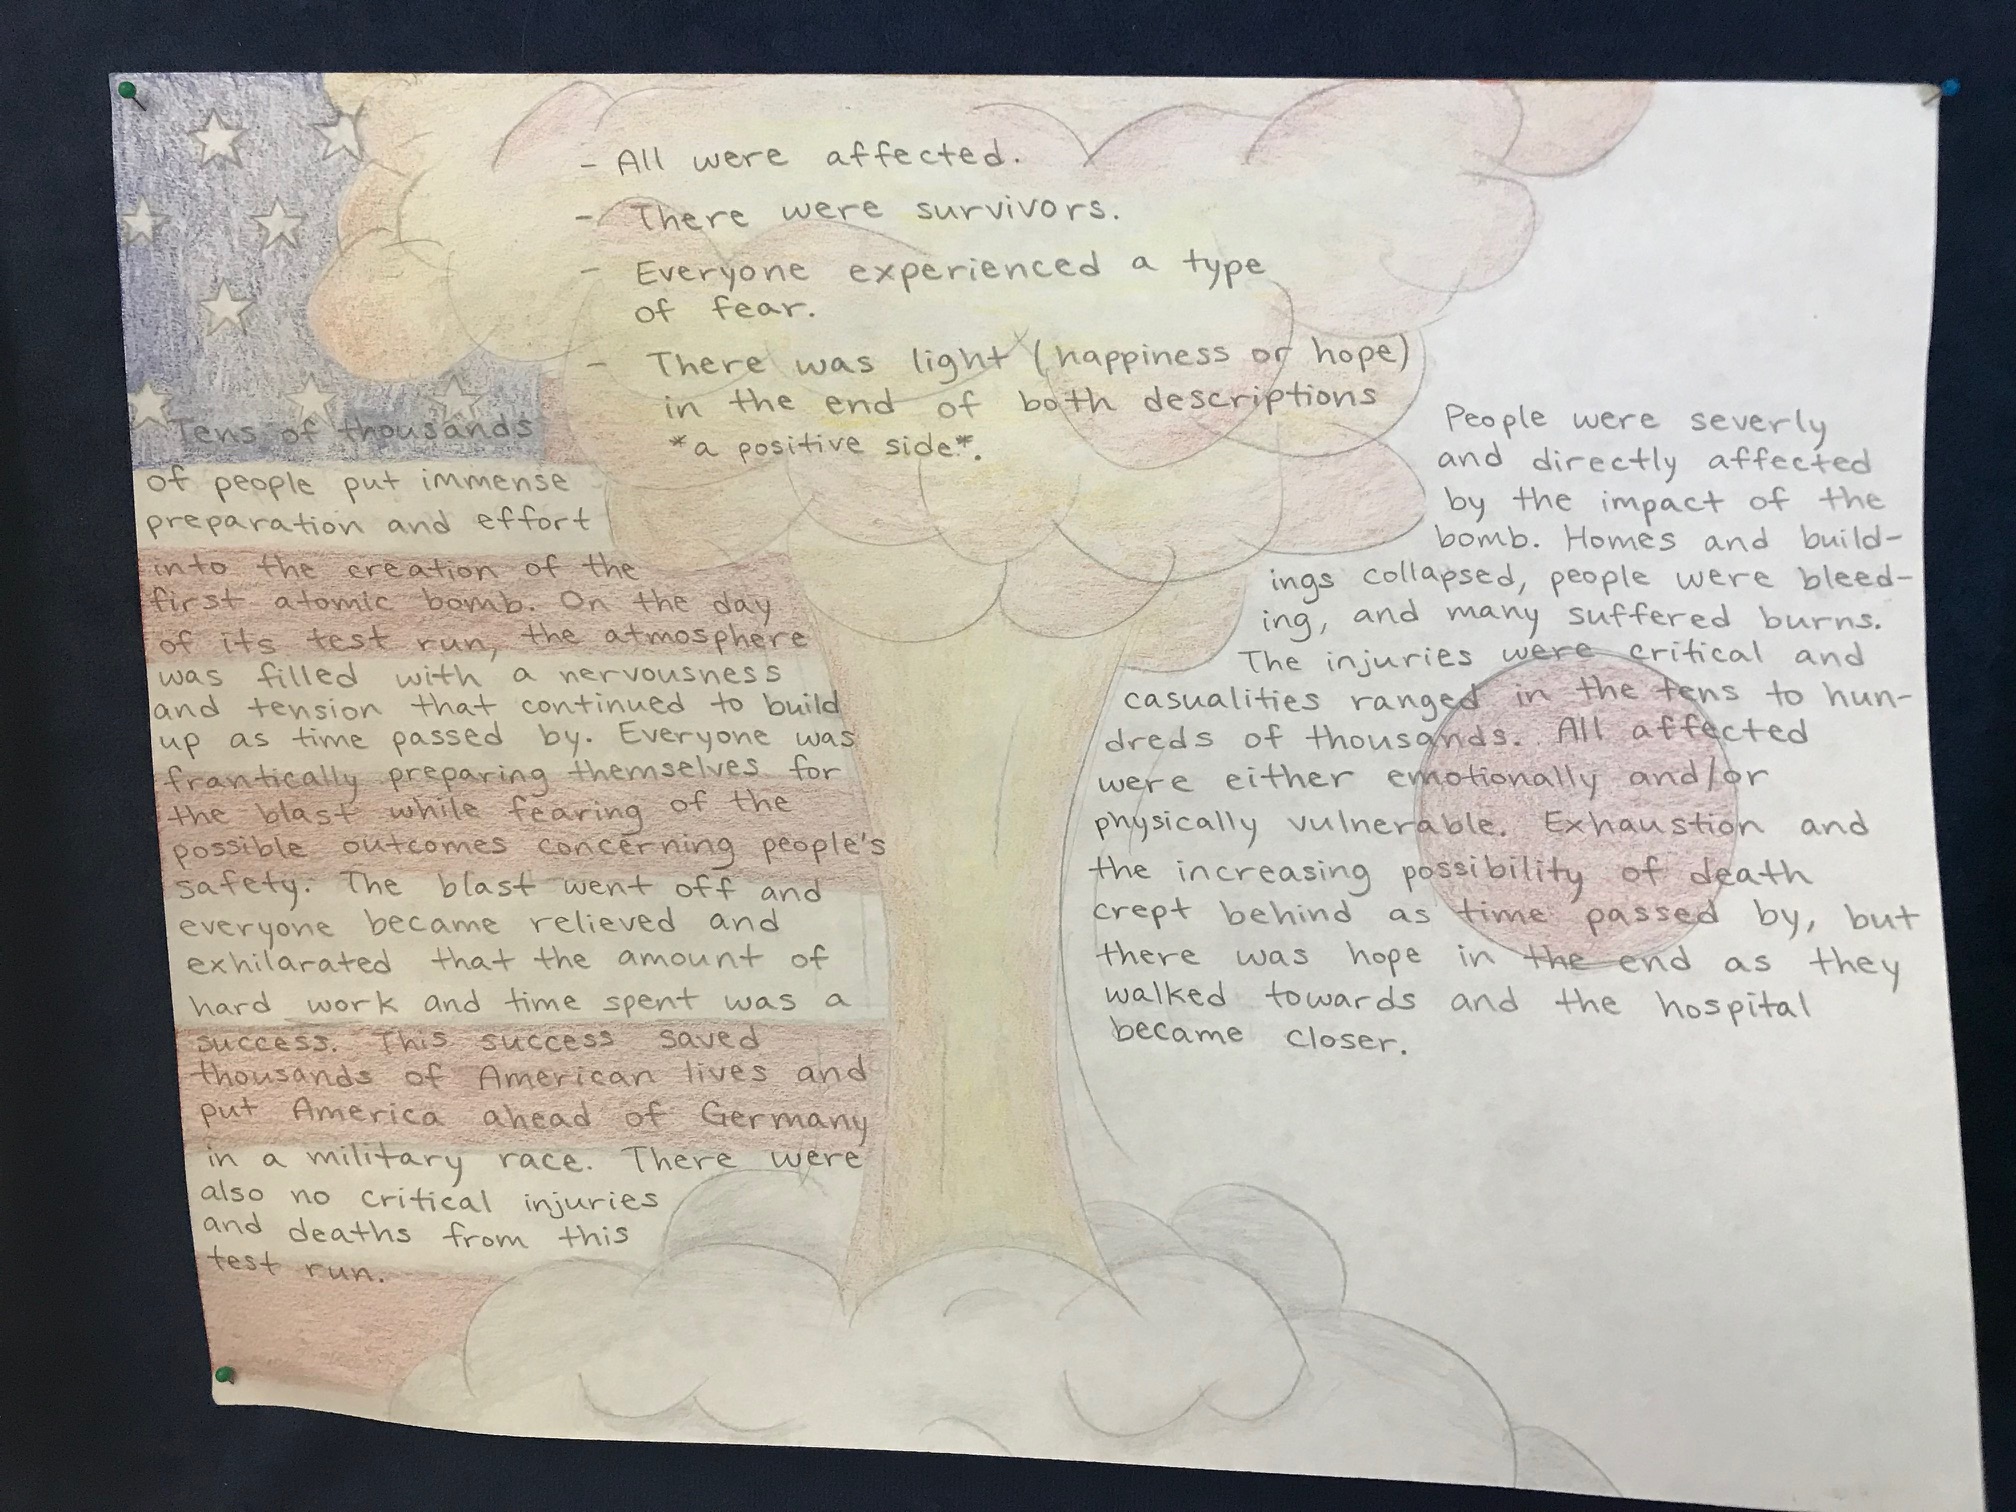 - All were affected.
- There were survivors.
- Everyone experienced a type
of fear.
- There was light (happiness or hope)
in the end of both descriptions
*a positive side*.
Tens of thousands
of people put immense
preparation and effort
into the creation of the
first atomic bomb. On the day
of its test run, the atmosphere
was filled with a nervousness
and tension that continued to build
up as time passed by. Everyone was
frantically preparing themselves for
the blast while fearing of the
possible outcomes concerning people's
safety. The blast went off and
everyone became relieved and
exhilarated that the amount of
hard work and time spent was a
success. This success saved
thousands of American lives and
put America ahead of Germany
in a military race. There were
also no critical injuries
and deaths from this
test run.
People were severly
and directly affected
by the impact of the
bomb. Homes and build-
ings collapsed, people were bleed-
ing, and many suffered burns.
The injuries were critical and
casualities ranged in the tens to hun-
dreds of thousands. All affected
were either emotionally and/or
physically vulnerable. Exhaustion and
the increasing possibility of death
crept behind as time passed by, but
there was hope in the end as they
walked towards and the hospital
became closer.